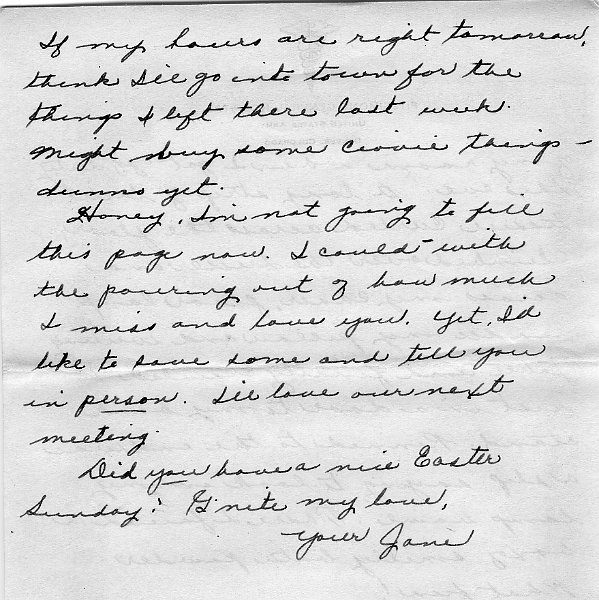 If my hours are right tomorrow,
think I'll go into town for the
things I left there last week.
Might buy some civvie things –
dunno yet.
Honey, I'm not going to fill
this page now. I could – with
the pouring out of how much
I miss and love you. Yet, I'd
like to save some and tell you
in person. I'll love our next
meeting.
Did you have a nice Easter
Sunday? G'nite my love,
Your Jane